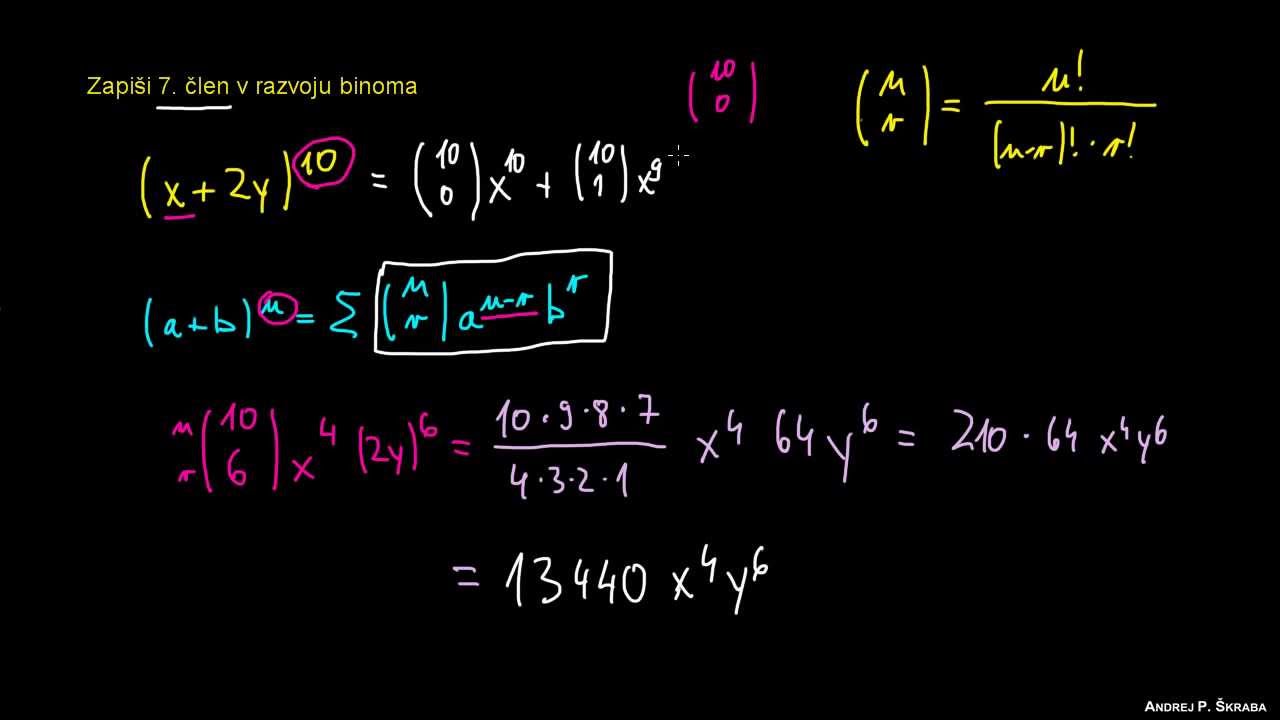 Zapiši 7. člen v razvoju binoma
(10 0)
(n r) = n! / (n-r)! · r!
(x + 2y)^10 = (10 0) x^10 + (10 1) x^9
(a+b)^n = Σ (n r) a^n-r b^r
n r (10 6) x^4 (2y)^6 = 10·9·8·7 / 4·3·2·1 x^4 64y^6 = 210 · 64 x^4y^6
= 13440 x^4y^6
ANDREJ P. ŠKRABA